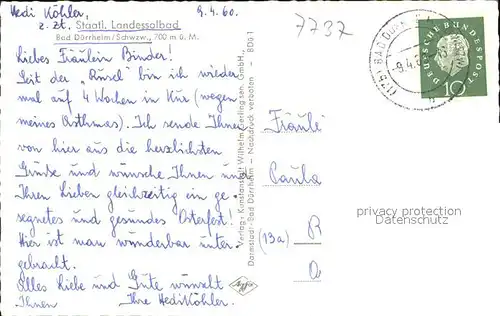 Hedi Köhler, 9.4.60.
z. Zt. Staatl. Landessolbad
Bad Dürrheim/Schwzw., 700 m ü. M.
7737
Liebes Fräulein Binder!
Seit der "Kinsel" bin ich wieder
mal auf 4 Wochen in Kur (wegen
meines Asthmas). Ich sende Ihnen
von hier aus die herzlichsten
Grüße und wünsche Ihnen und
Ihren Lieben gleichzeitig ein ge-
segnetes und gesundes Osterfest!
Hier ist man wunderbar unter-
gebracht.
Alles Liebe und Gute wünscht
Ihnen Ihre Hedi Köhler.
Verlag: Kunstanstalt Wilhelm Gerling sen. GmbH.
Darmstadt - Bad Dürrheim - Nachdruck verboten BDü 1
Fräulei
(13a) R
privacy protection
Datenschutz
DEUTSCHE BUNDESPOST
10